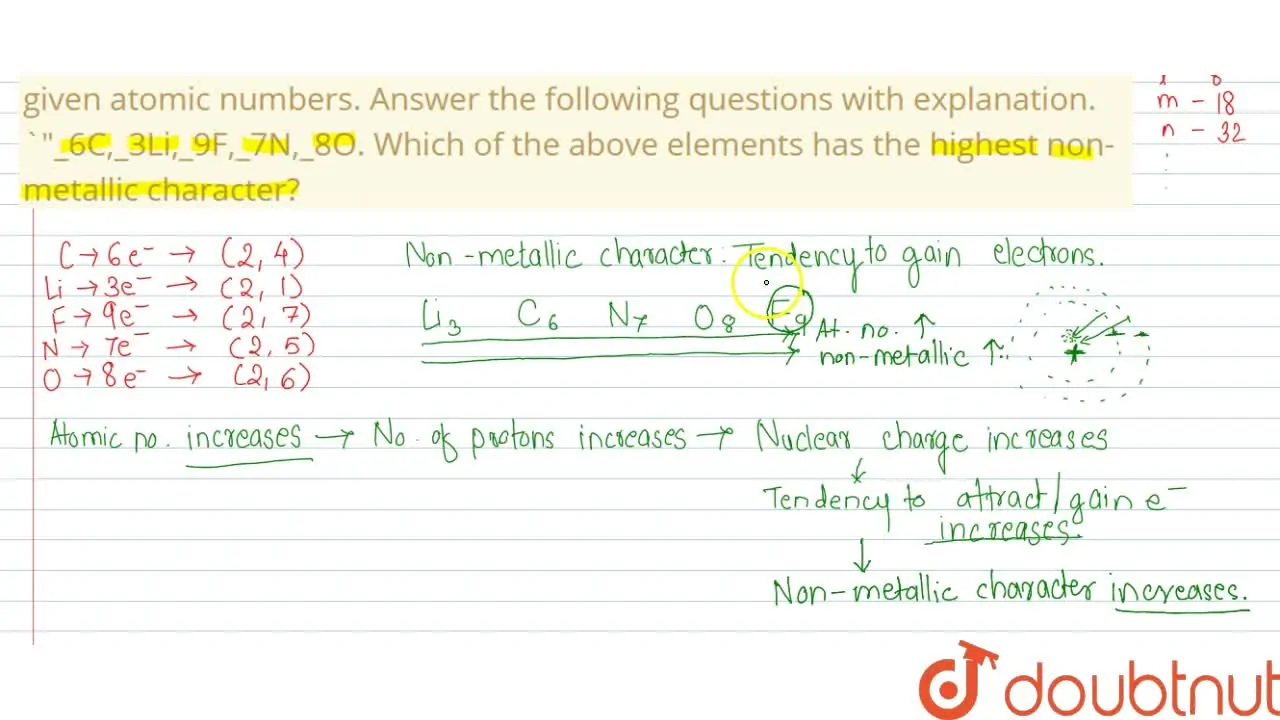 given atomic numbers. Answer the following questions with explanation.
`"_6C,_3Li,_9F,_7N,_8O. Which of the above elements has the highest non-
metallic character?
m - 18
n - 32
C → 6e⁻ → (2, 4)
Li → 3e⁻ → (2, 1)
F → 9e⁻ → (2, 7)
N → 7e⁻ → (2, 5)
O → 8e⁻ → (2, 6)
Non-metallic character: Tendency to gain electrons.
Li₃ C₆ N₇ O₈ F₉
At. no. ↑
non-metallic ↑
+
Atomic no. increases → No. of protons increases → Nuclear charge increases
↓
Tendency to attract/gain e⁻
increases.
↓
Non-metallic character increases.
doubtnut